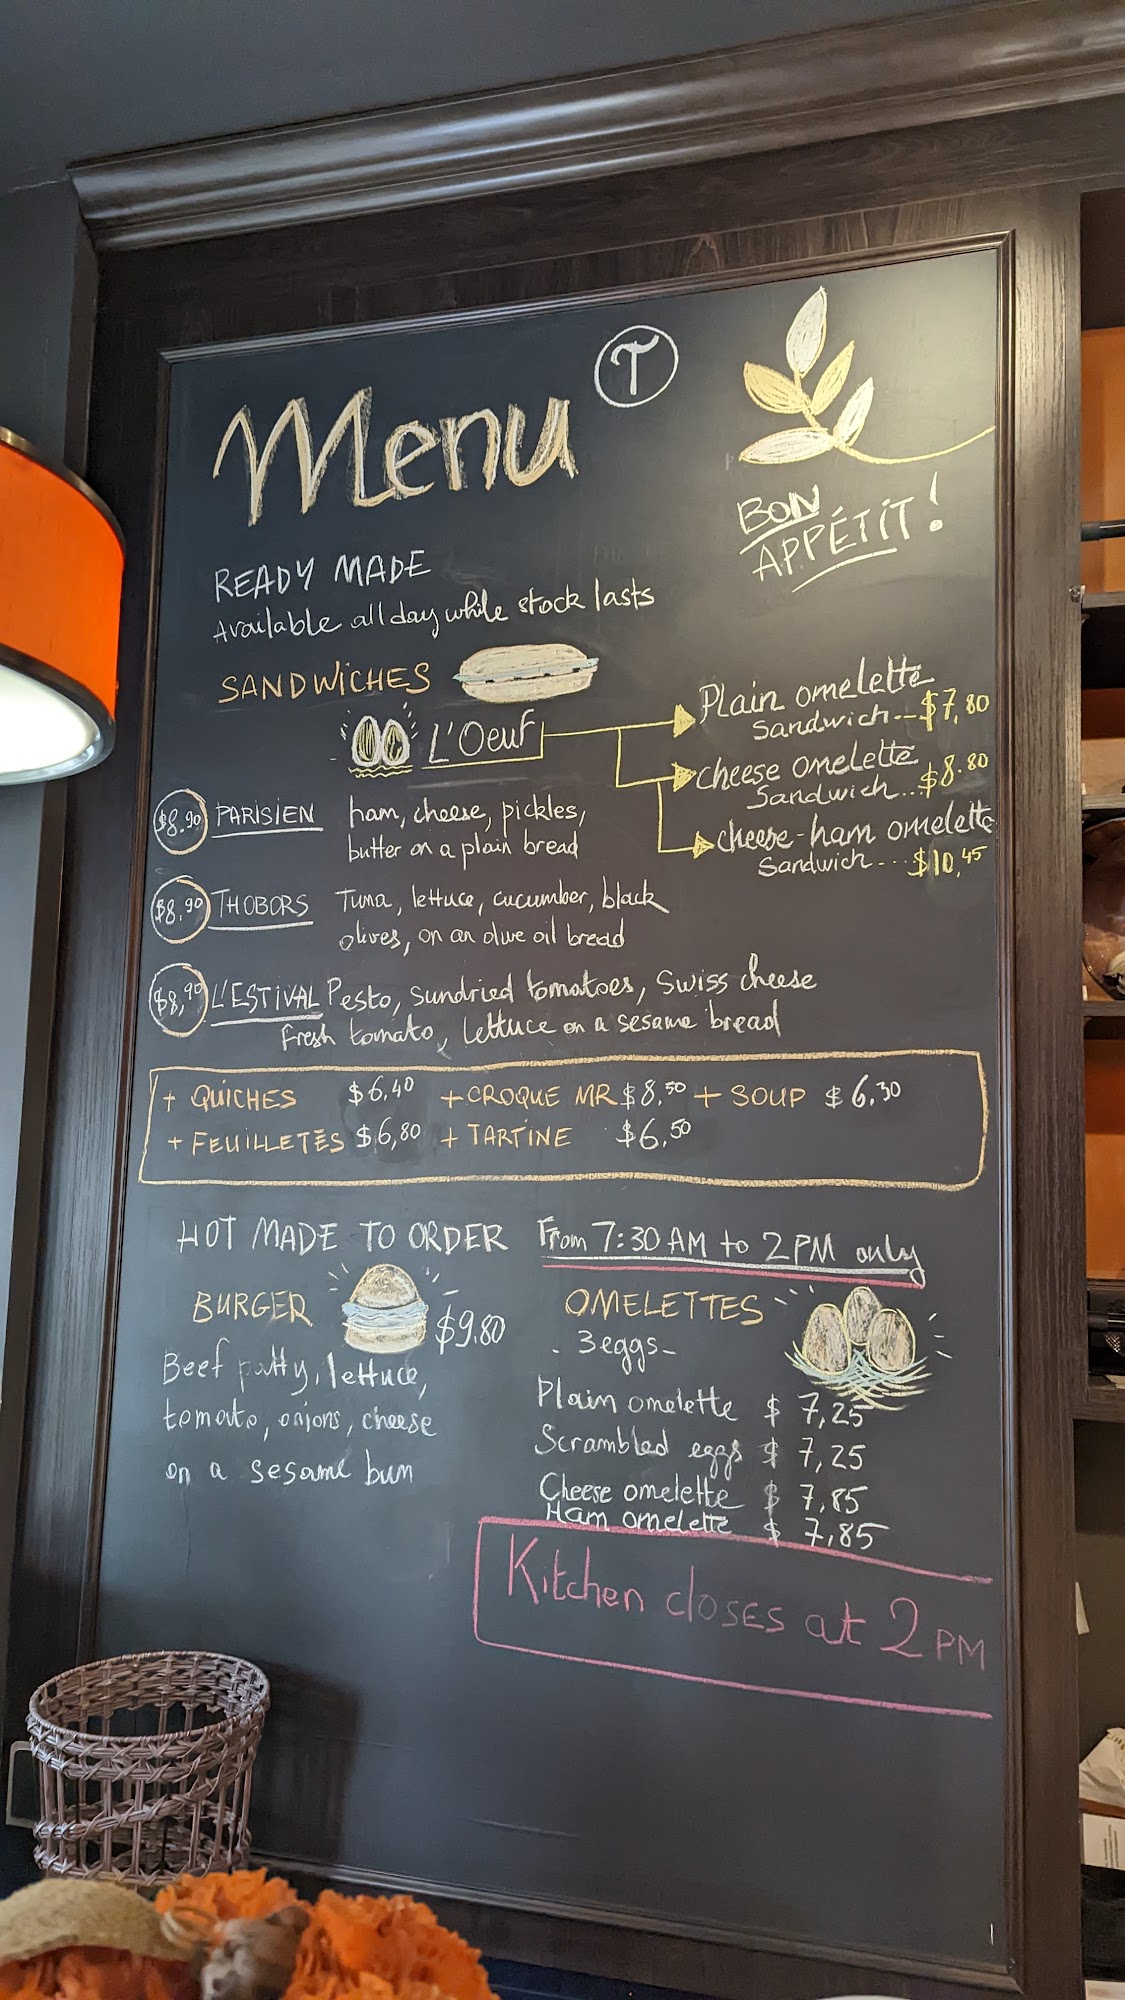 Menu
T
BON
APPÉTIT!
READY MADE
Available all day while stock lasts
SANDWICHES
L'Oeuf
Plain omelette
Sandwich--$7,80
cheese omelette
Sandwich...$8.80
cheese-ham omelette
Sandwich-...$10,45
$8.90 PARISIEN ham, cheese, pickles,
butter on a plain bread
$8,90 THOBORS Tuna, lettuce, cucumber, black
olives, on an olive oil bread
$8,90 L'ESTIVAL Pesto, sundried tomatoes, Swiss cheese
Fresh tomato, lettuce on a sesame bread
+ QUICHES $6.40 + CROQUE MR $8,50 + SOUP $6,30
+ FEUILLETÉS $6,80 + TARTINE $6,50
HOT MADE TO ORDER From 7:30 AM to 2PM only
BURGER $9.80
Beef patty, lettuce,
tomato, onions, cheese
on a sesame bun
OMELETTES
- 3eggs-
Plain omelette $ 7,25
Scrambled eggs $ 7,25
Cheese omelette $ 7,85
Ham omelette $ 7,85
Kitchen closes at 2 PM